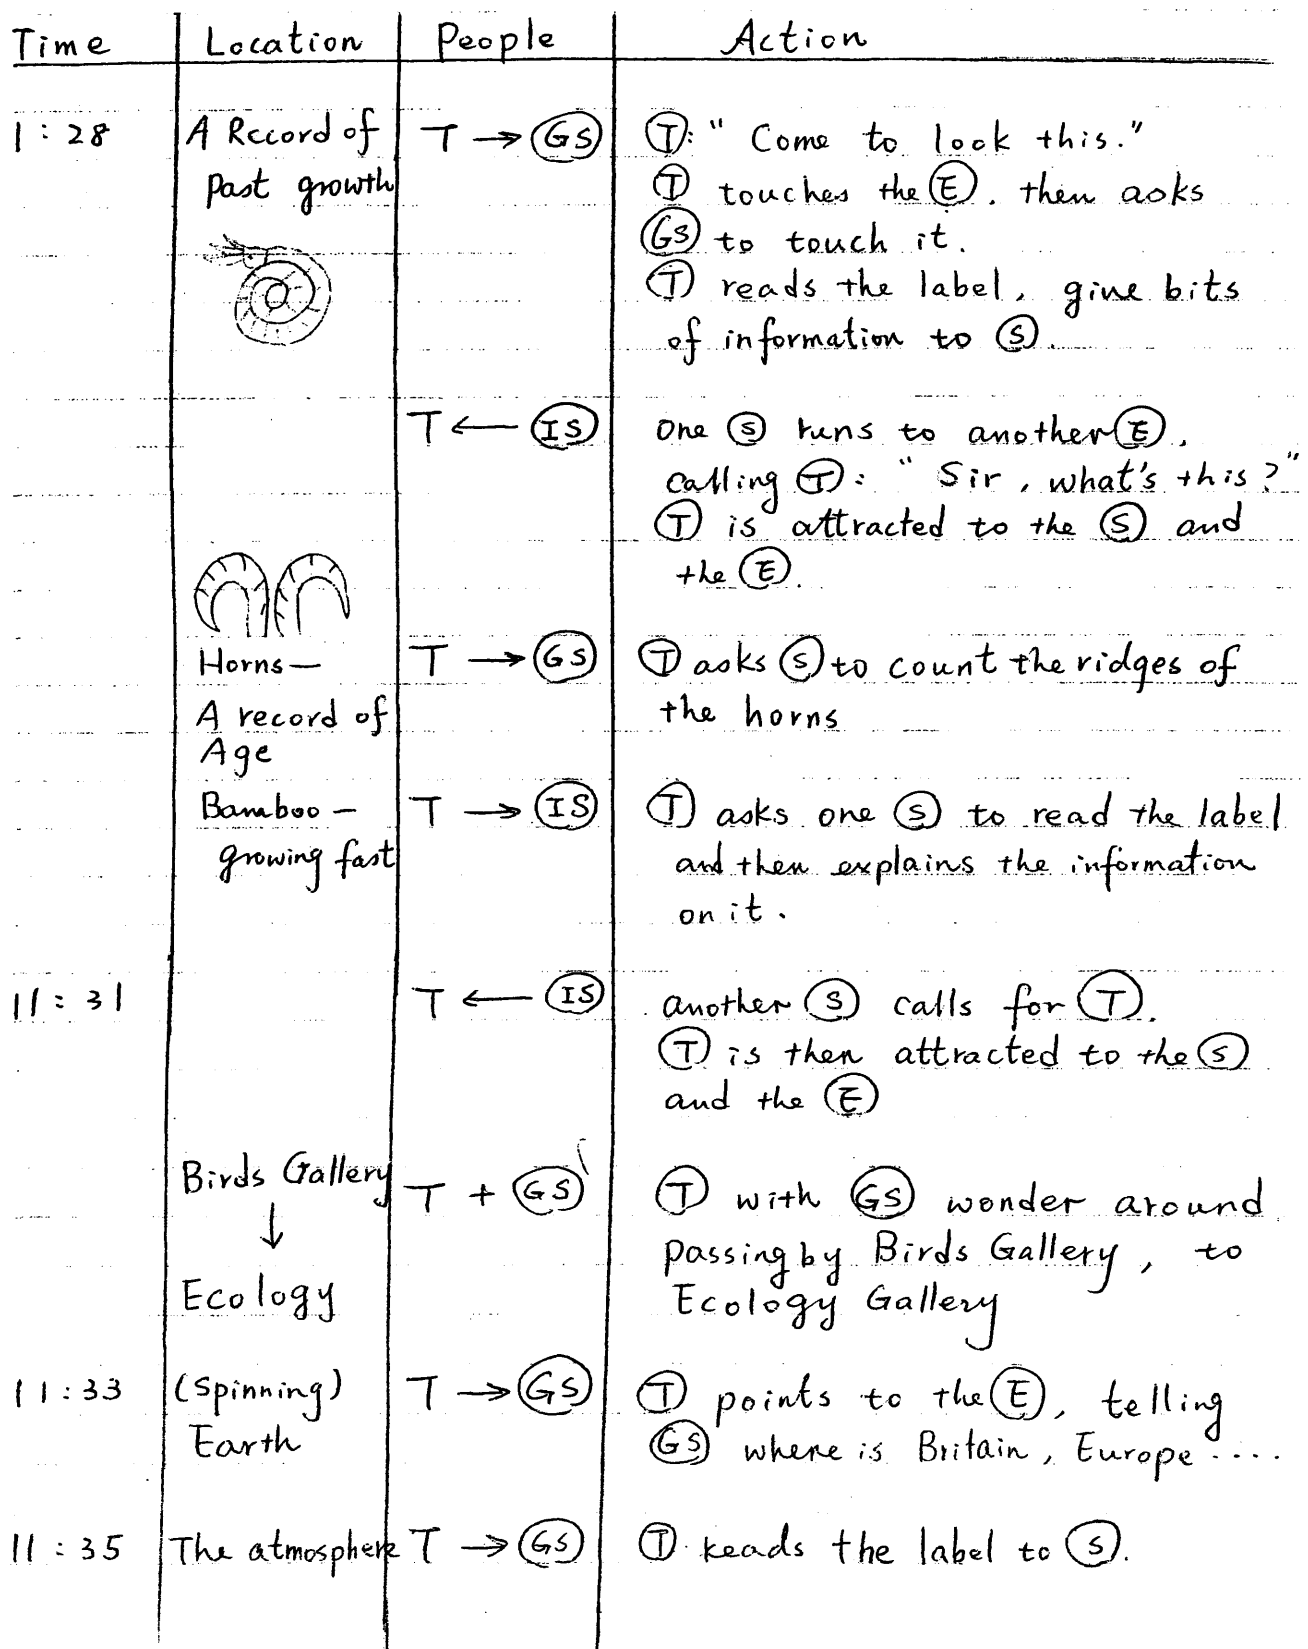 Time Location People Action
1:28 A Record of T → GS T: "Come to look this."
Past growth T touches the E, then asks
GS to touch it.
T reads the label, give bits
of information to S.
T ← IS One S runs to another E,
calling T: "Sir, what's this?"
T is attracted to the S and
the E.
Horns— T → GS T asks S to count the ridges of
A record of the horns
Age
Bamboo— T → IS T asks one S to read the label
growing fast and then explains the information
on it.
11:31 T ← IS another S calls for T.
T is then attracted to the S
and the E
Birds Gallery T + GS T with GS wonder around
↓ passing by Birds Gallery, to
Ecology Ecology Gallery
11:33 (Spinning) T → GS T points to the E, telling
Earth GS where is Britain, Europe ....
11:35 The atmosphere T → GS T reads the label to S.